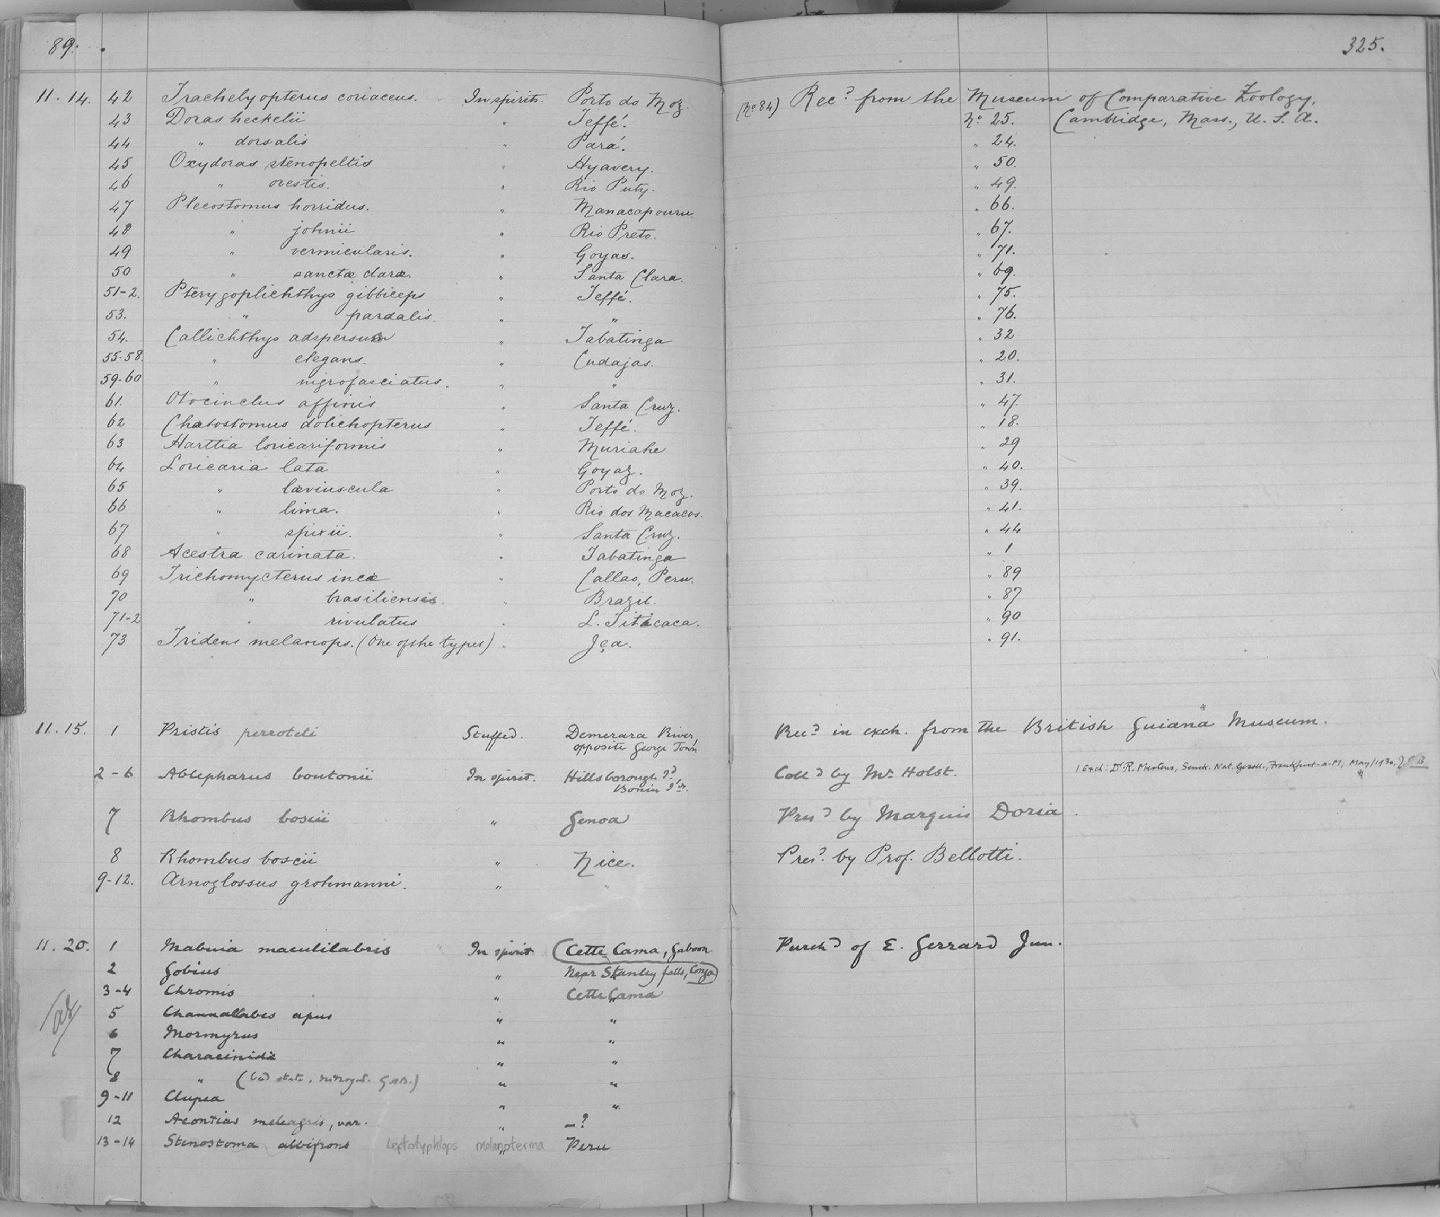 89. 325.
11.14. 42 Trachelyopterus coriaceus. In spirit. Porto do Moz. (No 84) Recd from the Museum of Comparative Zoology,
43 Doras heckelii " Teffé. No 25. Cambridge, Mass., U.S.A.
44 " dorsalis " Pará. " 24.
45 Oxydoras stenopeltis " Hyavery. " 50.
46 " orestis. " Rio Puty. " 49.
47 Plecostomus horridus. " Manacapouru " 66.
48 " johnii " Rio Preto. " 67.
49 " vermicularis. " Goyas. " 71.
50 " sanctæ claræ " Santa Clara " 69.
51-2. Pterygoplichthys gibbiceps " Teffé. " 75.
53. " pardalis. " " " 76.
54. Callichthys adspersus " Tabatinga " 32
55-58. " elegans. " Cudajas. " 20.
59-60 " nigrofasciatus. " " " 31.
61. Otocinclus affinis " Santa Cruz. " 47.
62 Chætostomus dolichopterus " Teffé. " 18.
63 Harttia loricariformis " Muriahe " 29
64 Loricaria lata " Goyaz. " 40.
65 " læviuscula " Porto do Moz. " 39.
66 " lima. " Rio dos Macacos. " 41.
67 " spixii. " Santa Cruz. " 44
68 Acestra carinata. " Tabatinga " 1
69 Trichomycterus incæ " Callao, Peru. " 89
70 " brasiliensis. " Brazil. " 87
71-2 " rivulatus " L. Titicaca. " 90
73 Tridens melanops. (One of the types) " Iça. " 91.
11.15. 1 Pristis perroteti Stuffed. Demerara River, Recd in exch. from the British Guiana Museum.
opposite George Town
2-6 Ablepharus boutonii In spirit. Hillsborough Id Colld by Mr Holst. 1 Exch: Dr R. Mertens, Senck. Nat. Gesell., Frankfurt-a-M.,
Bonin Ids.
7 Rhombus boscii " Genoa Presd by Marquis Doria
8 Rhombus boscii " Nice. Presd. by Prof. Bellotti.
9-12. Arnoglossus grohmanni. " "
11.20. 1 Mabuia maculilabris In spirit (Cette Cama, Gaboon Purchd of E. Gerrard Jun.
2 Gobius " Near Stanley falls, Congo)
3-4 Chromis " Cette Cama
5 Channallabes apus " "
6 Mormyrus " "
7 Characinidæ " "
8 " (bad state, destroyed. G.A.B.) " "
9-11 Clupea " "
12 Acontias meleagris, var. " — ?
13-14 Stenostoma albifrons Leptotyphlops melanoterma " Peru